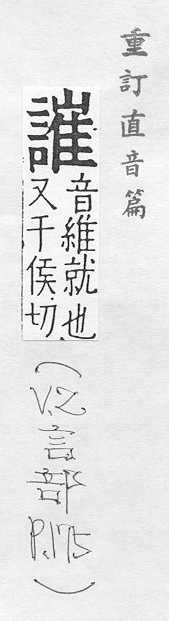 重訂直音篇
音維就也
又千侯切
(V.2言部P.175)